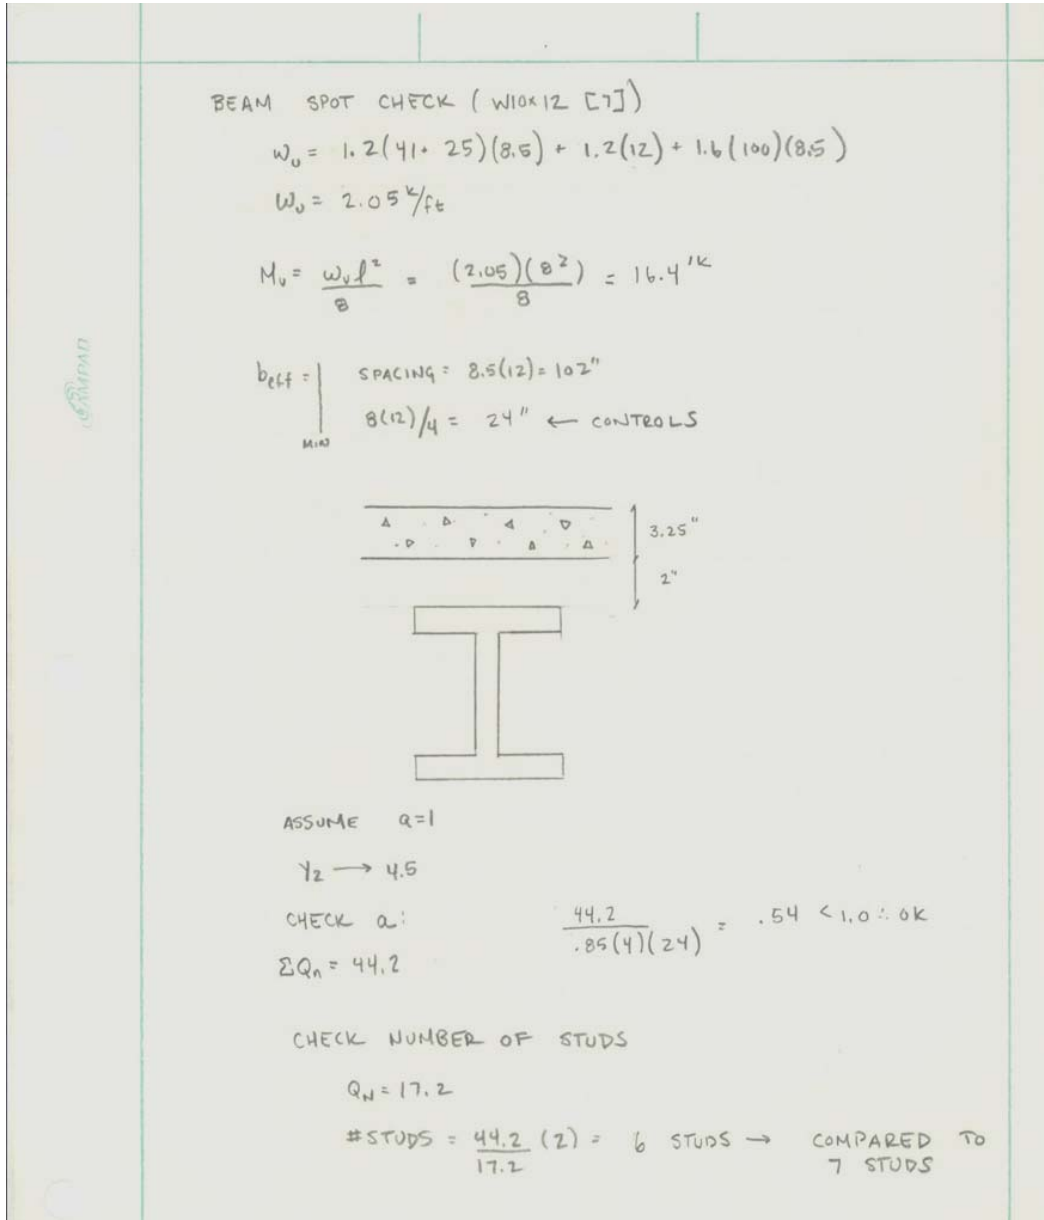 BEAM SPOT CHECK (W10x12 [7])
Wu = 1.2(41+ 25)(8.5) + 1.2(12) + 1.6(100)(8.5)
Wu = 2.05 k/ft
Mu = wul²/8 = (2.05)(8²)/8 = 16.4'k
beff = | SPACING = 8.5(12)= 102"
8(12)/4 = 24" ← CONTROLS
MIN
3.25"
2"
ASSUME a=1
Y2 → 4.5
CHECK a: 44.2/.85(4)(24) = .54 < 1.0 ∴ OK
ΣQn = 44.2
CHECK NUMBER OF STUDS
QN = 17.2
#STUDS = 44.2/17.2 (2) = 6 STUDS → COMPARED TO
7 STUDS
AMPAD